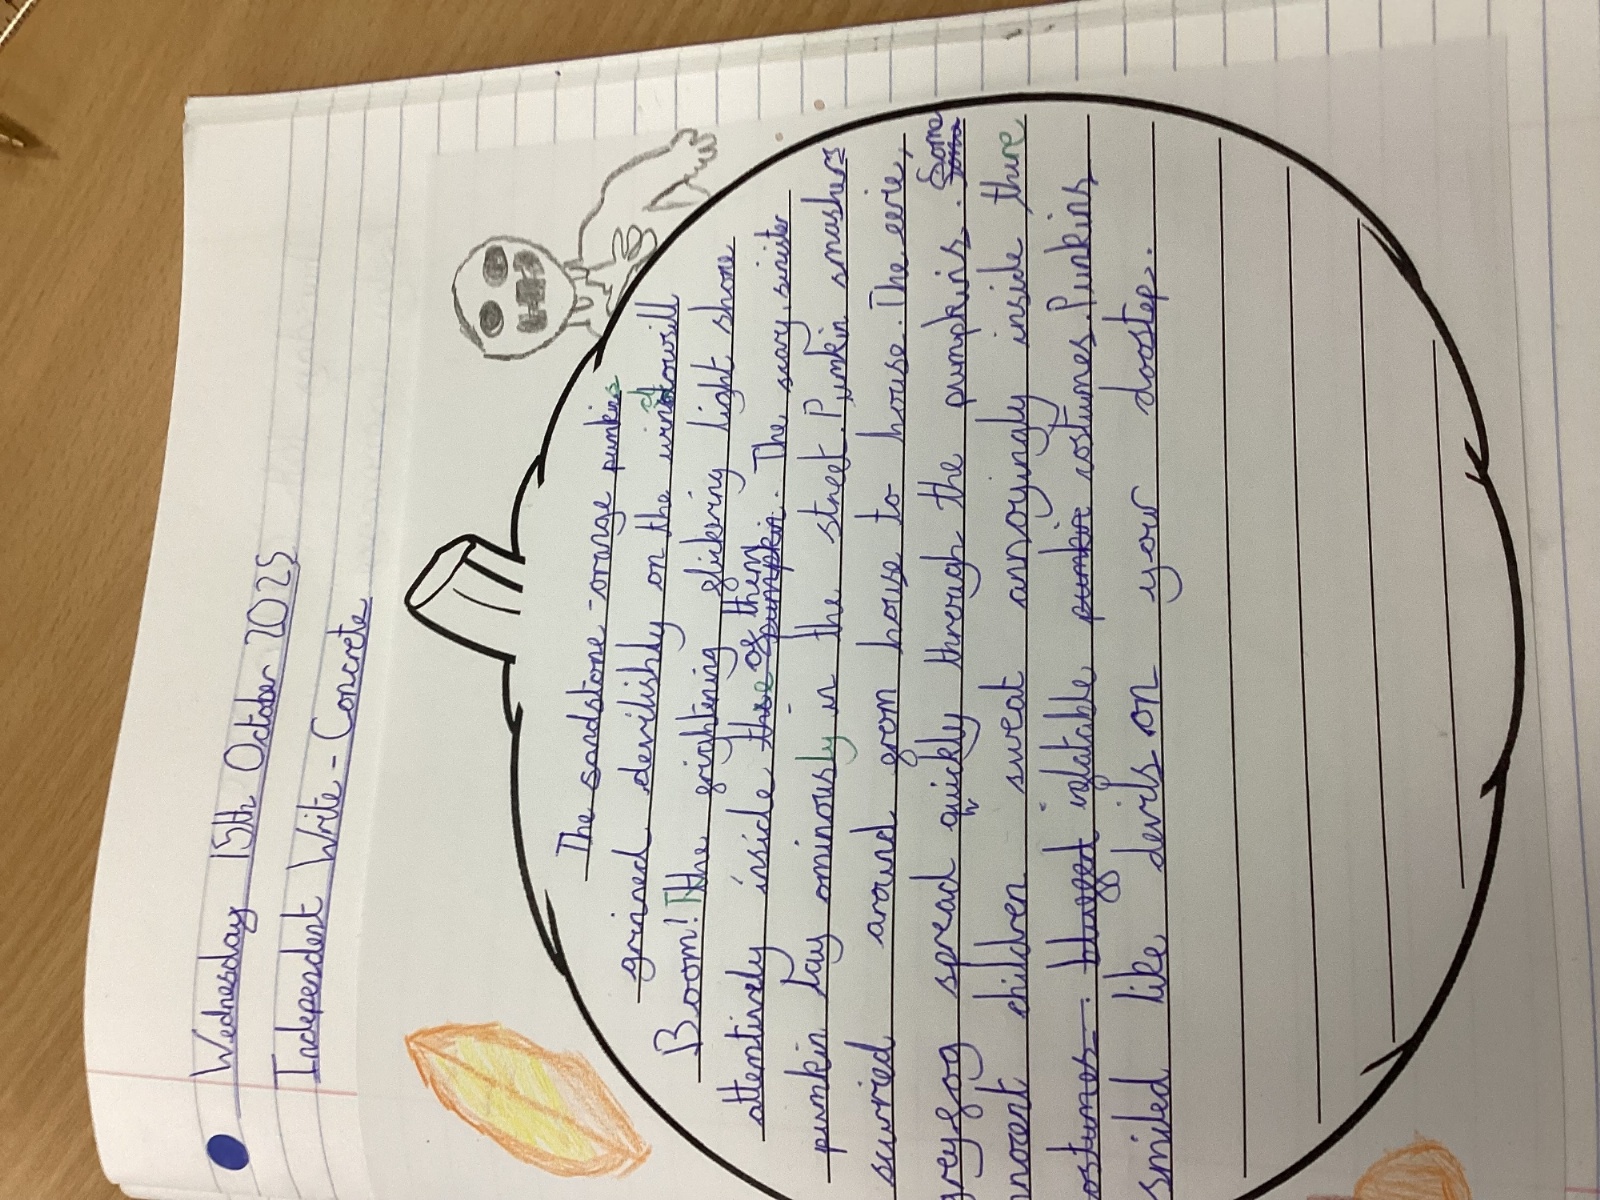 Wednesday 15th October 2025
Independent Write - Concrete
The sandstone-orange punkins
grined devilishly on the windowsill
Boom! The frightening flikering light shone
attentively inside these of them pumpkin. The scary, sinister
pumkin lay ominously in the street. Pumkin smashers
scurried around from house to house. The eerie,
grey fog spread quickly through the pumpkins. Some
innocent children sweat annoyingly inside there
costumes. blugged inflatable pumkin costumes. Punkins
smiled like devils on your doostep.